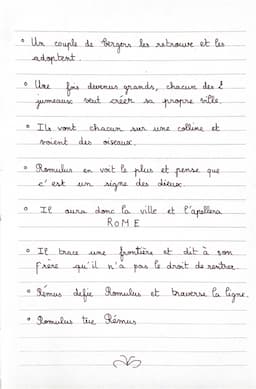 • Un couple de bergers les retrouve et les
adoptent.
• Une fois devenus grands, chacun des 2
jumeaux veut créer sa propre ville.
• Ils vont chacun sur une colline et
voient des oiseaux.
• Romulus en voit le plus et pense que
c'est un signe des dieux.
• Il aura donc la ville et l'apellera
ROME
• Il trace une frontière et dit à son
frère qu'il n'a pas le droit de rentrer.
• Rémus défie Romulus et traverse la ligne.
• Romulus tue Rémus